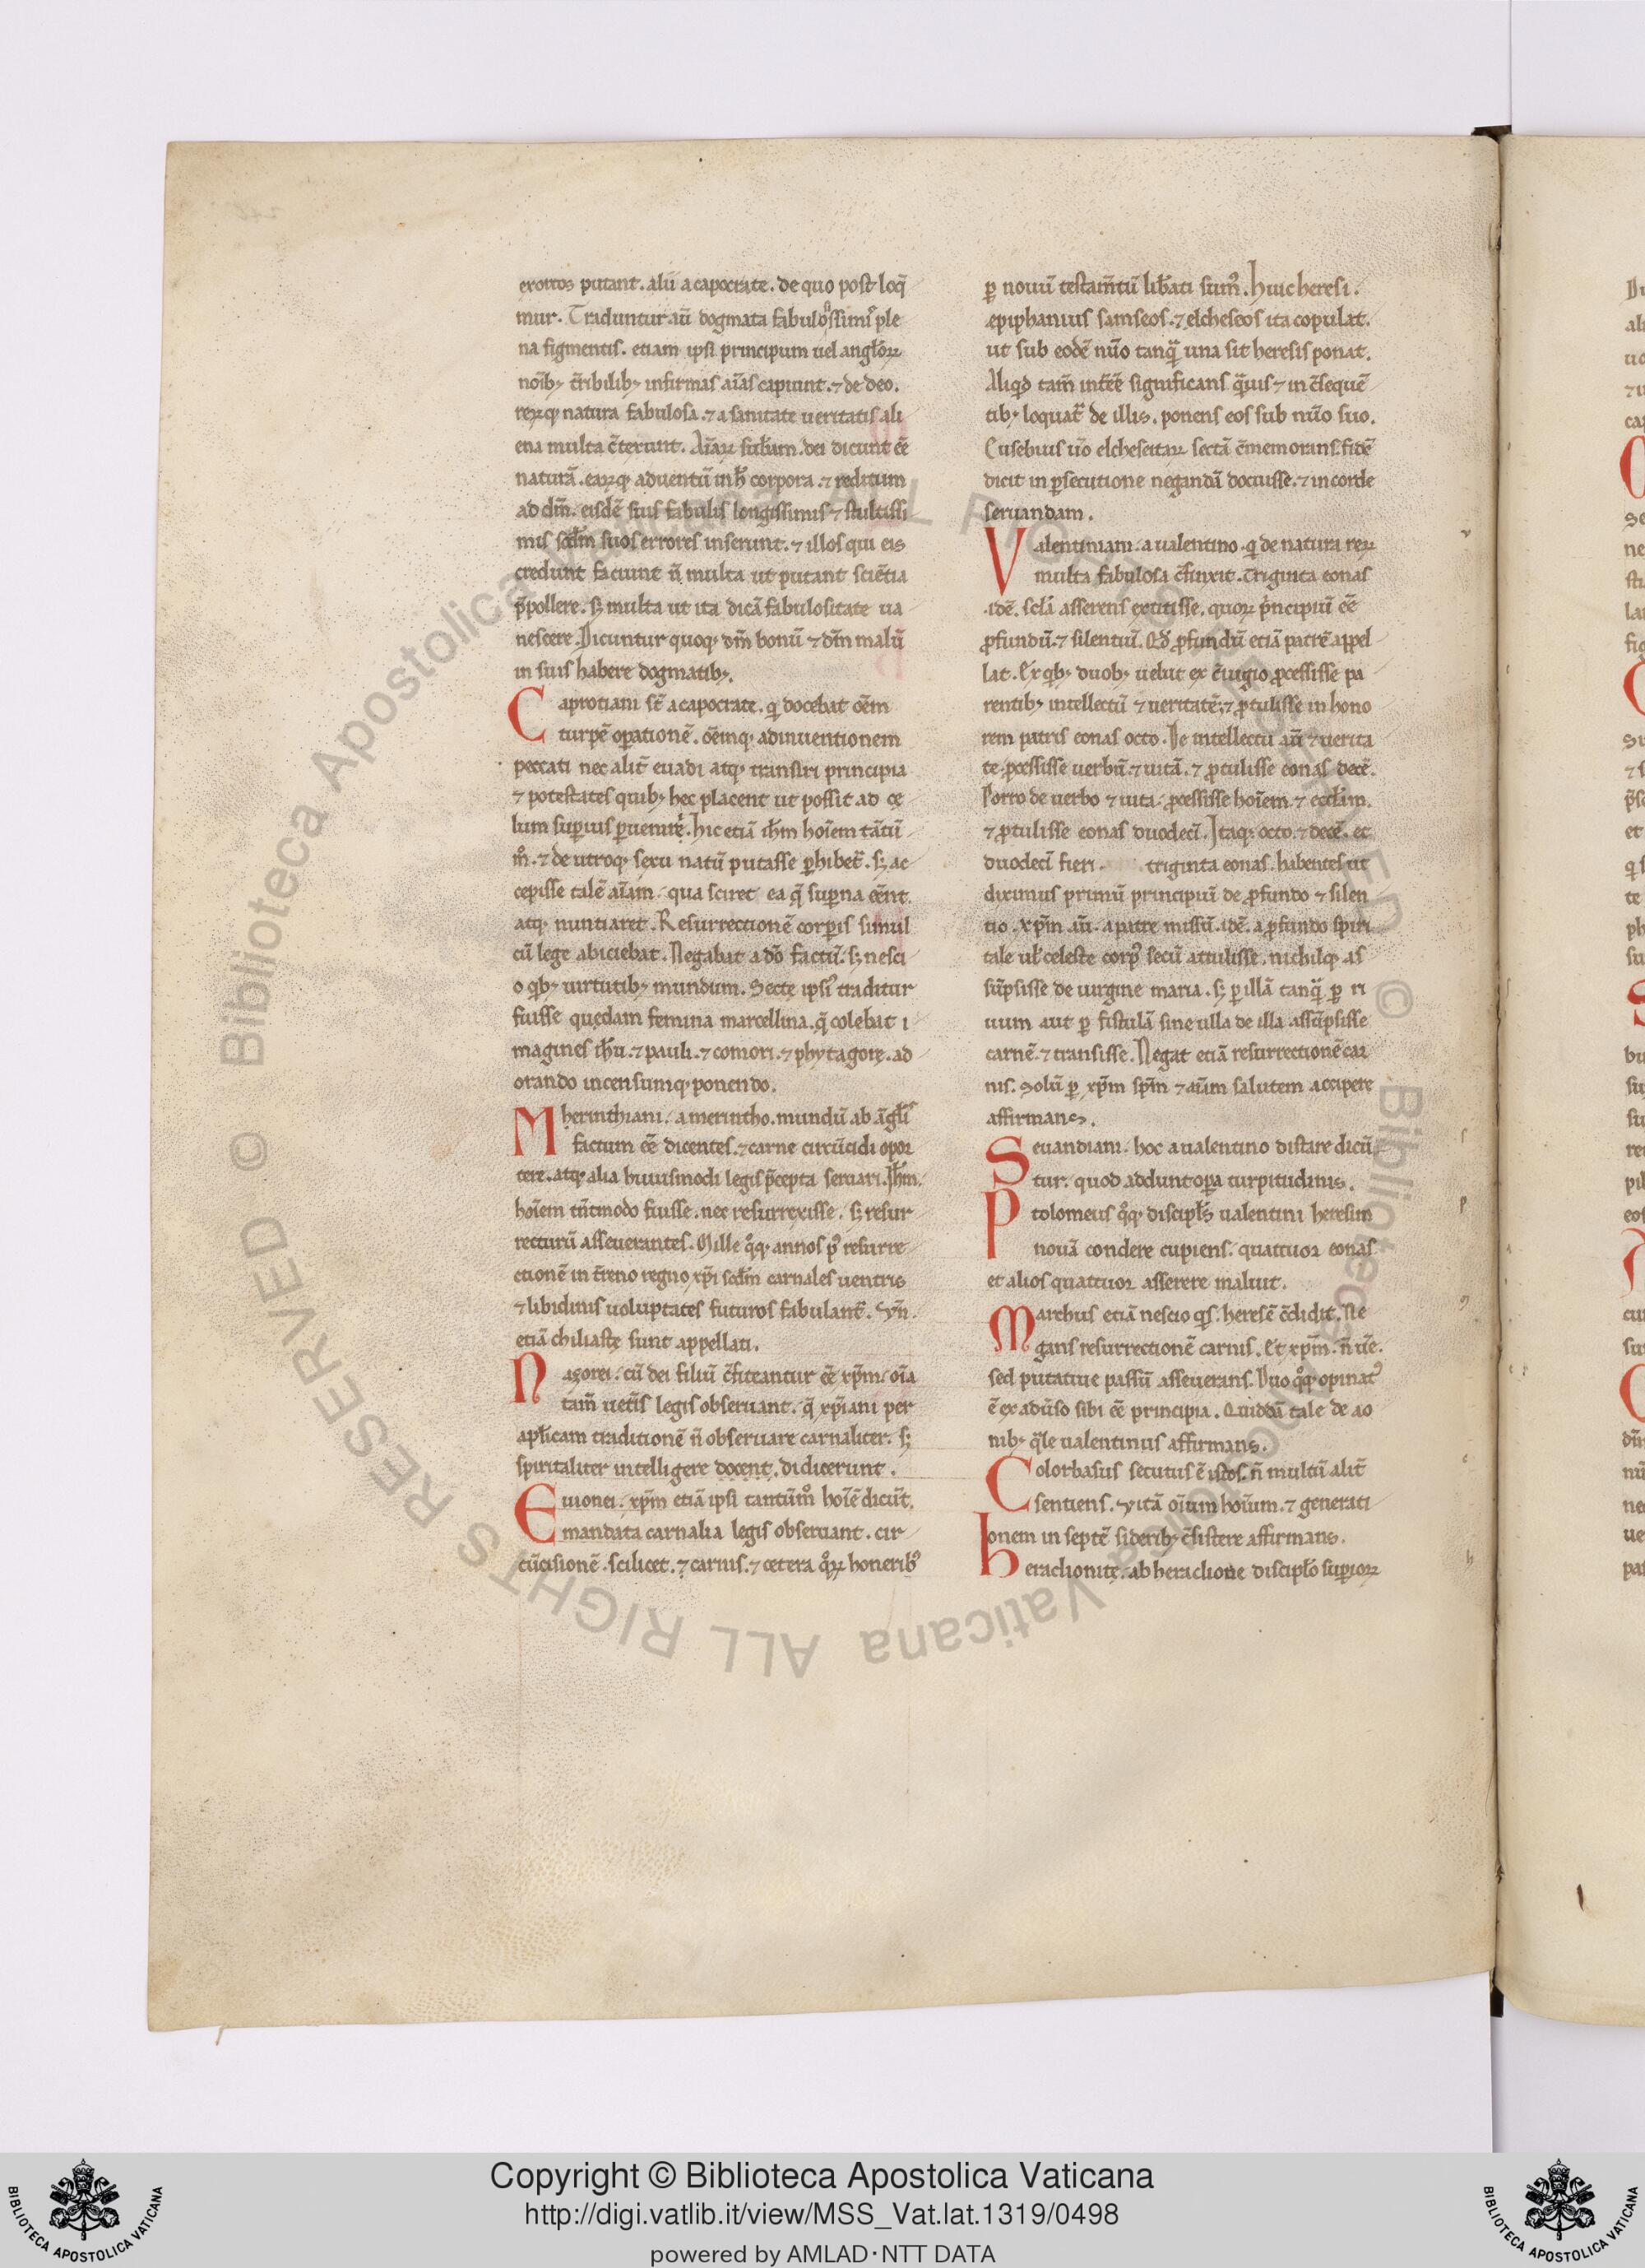 exortos putant. alii a capocrate. de quo post loq̄
mur. Traduntur aū dogmata fabulosissimis ple
na figmentis. etiam ipsi principum uel anglorꝝ
noıb; t̄ribilib; infirmas aı̄as capiunt. ⁊ de deo.
rerꝝq; natura fabulosa. ⁊ a sanitate ueritatis ali
ena multa c̄terunt. Aı̄arꝝ sub̄am. dei dicunt eē
naturā. earꝝq; aduentū in h̄ corpora. ⁊ reditum
ad dm̄. eisdē suis fabulis longissimis ⁊ stultissi
mis scd̄m suos errores inserunt. ⁊ illos qui eis
credunt faciunt n̄ multa ut putant sciētia
p̄pollere. sꝫ multa ut ita dicā fabulositate ua
nescere. Dicuntur quoq; dm̄ bonū ⁊ dm̄ malū
in suis habere dogmatib;.
Caprotiani st̄ a capocrate. q̄ docebat oēm
turpē oꝑationē. oēmq; adinuentionem
peccati nec alit̄ euadi atq; transiri principia
⁊ potestates quib; hec placent ut possit ad cę
lum suꝑius ꝑuenire. hic etiā ih̄m hoı̄em tātū
m̊. ⁊ de utroq; sexu natū putasse ꝑhibet̄. sꝫ ac
cepisse talē aı̄am. qua sciret ea q̄ suꝑna eēnt.
atq; nuntiaret. Resurrectionē corꝑis simul
cū lege abiciebat. Negabat a dō factū. sꝫ nesci
o qb; uirtutib; mundum. Secte ipsi᾽ traditur
fuisse quędam femina marcellina. q̄ colebat i
magines ih̄u. ⁊ pauli. ⁊ comori. ⁊ phytagorę. ad
orando incensumq; ponendo.
Mherinthiani. a merintho. mundū ab āglis
factum eē dicentes. ⁊ carne circūcidi opor
tere. atq; alia huiusmodi legis p̄cepta seruari. Ih̄m.
hoı̄em tn̄tmodo fuisse. nec resurrexisse. sꝫ resur
recturū asseuerantes. Mille q̊q; annos p᾽ resurre
ctionē in t̄reno regno xp̄i scd̄m carnales uentris
⁊ libidinis uoluptates futuros fabulant̄. Vn̄.
etiā chiliastę sunt appellati.
Nazorei. cū dei filiū c̄fiteantur eē xp̄m. oı̄a
tam̄ uet̄is legis obseruant. q̄ xp̄iani per
apl̄icam traditionē n̄ obseruare carnaliter. sꝫ
spiritaliter intelligere docent. didicerunt.
Euionei. xp̄m etiā ipsi tantūm̊ hoı̄ē dicūt.
mandata carnalia legis obseruant. cir
cūcisionē. scilicet. ⁊ carnis. ⁊ cetera q̊rꝝ honerib᾽
ꝑ nouū testam̄tū lib̄ati sum᾽. Huic heresi.
epiphanius samseos. ⁊ elcheseos ita copulat.
ut sub eodē nūo tanq̄ una sit heresis ponat.
Aliqd tam̄ int̄eē significans q̄uis ⁊ in c̄sequē
tib; loquat̄ de illis. ponens eos sub nūo suo.
Eusebius ūo elcheseitarꝝ sectā c̄memorans. fidē
dicit in ꝑsecutione negandā docuisse. ⁊ in corde
seruandam.
Valentiniani. a ualentino. q̄ de natura rerꝝ
multa fabulosa c̄finxit. Triginta eonas
.idē. scl̄a asserens extitisse. quorꝝ p̄ncipiū eē
ꝓfundū. ⁊ silentiū. Qd̄ ꝓfundū etiā patrē appel
lat. Ex qb; duob; uelut ex c̄iugio ꝓcessisse pa
rentib; intellectū ⁊ ueritatē. ⁊ ꝓtulisse in hono
rem patris eonas octo. De intellectu aū ⁊ uerita
te. ꝓcessisse uerbū. ⁊ uitā. ⁊ ꝓtulisse eonas decē.
Porro de uerbo ⁊ uita. ꝓcessisse hoı̄em. ⁊ eccl̄iam.
⁊ ꝓtulisse eonas duodecı̄. Itaq; octo. ⁊ decē. et
duodecı̄ fieri triginta eonas. habentes ut
diximus primū principiū de ꝓfundo ⁊ silen
tio. xp̄m aū. a patre missū. idē. a ꝓfundo spiri
tale ul̄ celeste corp᾽ secū attulisse. nichilq; as
sūpsisse de uirgine maria. sꝫ ꝑ illā tanq̄ ꝑ ri
uum aut ꝑ fistulā sine ulla de illa assūpsisse
carnē. ⁊ transisse. Negat etiā resurrectionē car
nis. solū ꝑ xp̄m sp̄m ⁊ aı̄m salutem accipere
affirmans.
Seuandiani. hoc a ualentino distare dicū
tur. quod addunt oꝑa turpitudinis.
Ptolomeus q̊q; discipl̄s ualentini heresim
nouā condere cupiens. quattuor eonas
et alios quattuor asserere maluit.
Marchus etiā nescio qs. heresē c̄didit. Ne
gans resurrectionē carnis. Et xp̄m. n̄ uē.
sed putatiue passū asseuerans. Duo q̊q; opinat᾽
ē ex adūso sibi eē principia. Quiddā tale de ao
nib; q̄le ualentinus affirmans.
Colorbasus secutus ē istos. n̄ multū alit̄
sentiens. Vitā oı̄um hoı̄um. ⁊ generati
onem in septē siderib; c̄sistere affirmans.
Heraclionitę. ab heraclione discipl̄o suꝑiorꝝ
© Biblioteca Apostolica Vaticana ALL RIGHTS RESERVED
Copyright © Biblioteca Apostolica Vaticana
http://digi.vatlib.it/view/MSS_Vat.lat.1319/0498
powered by AMLAD·NTT DATA
BIBLIOTECA APOSTOLICA VATICANA
BIBLIOTECA APOSTOLICA VATICANA